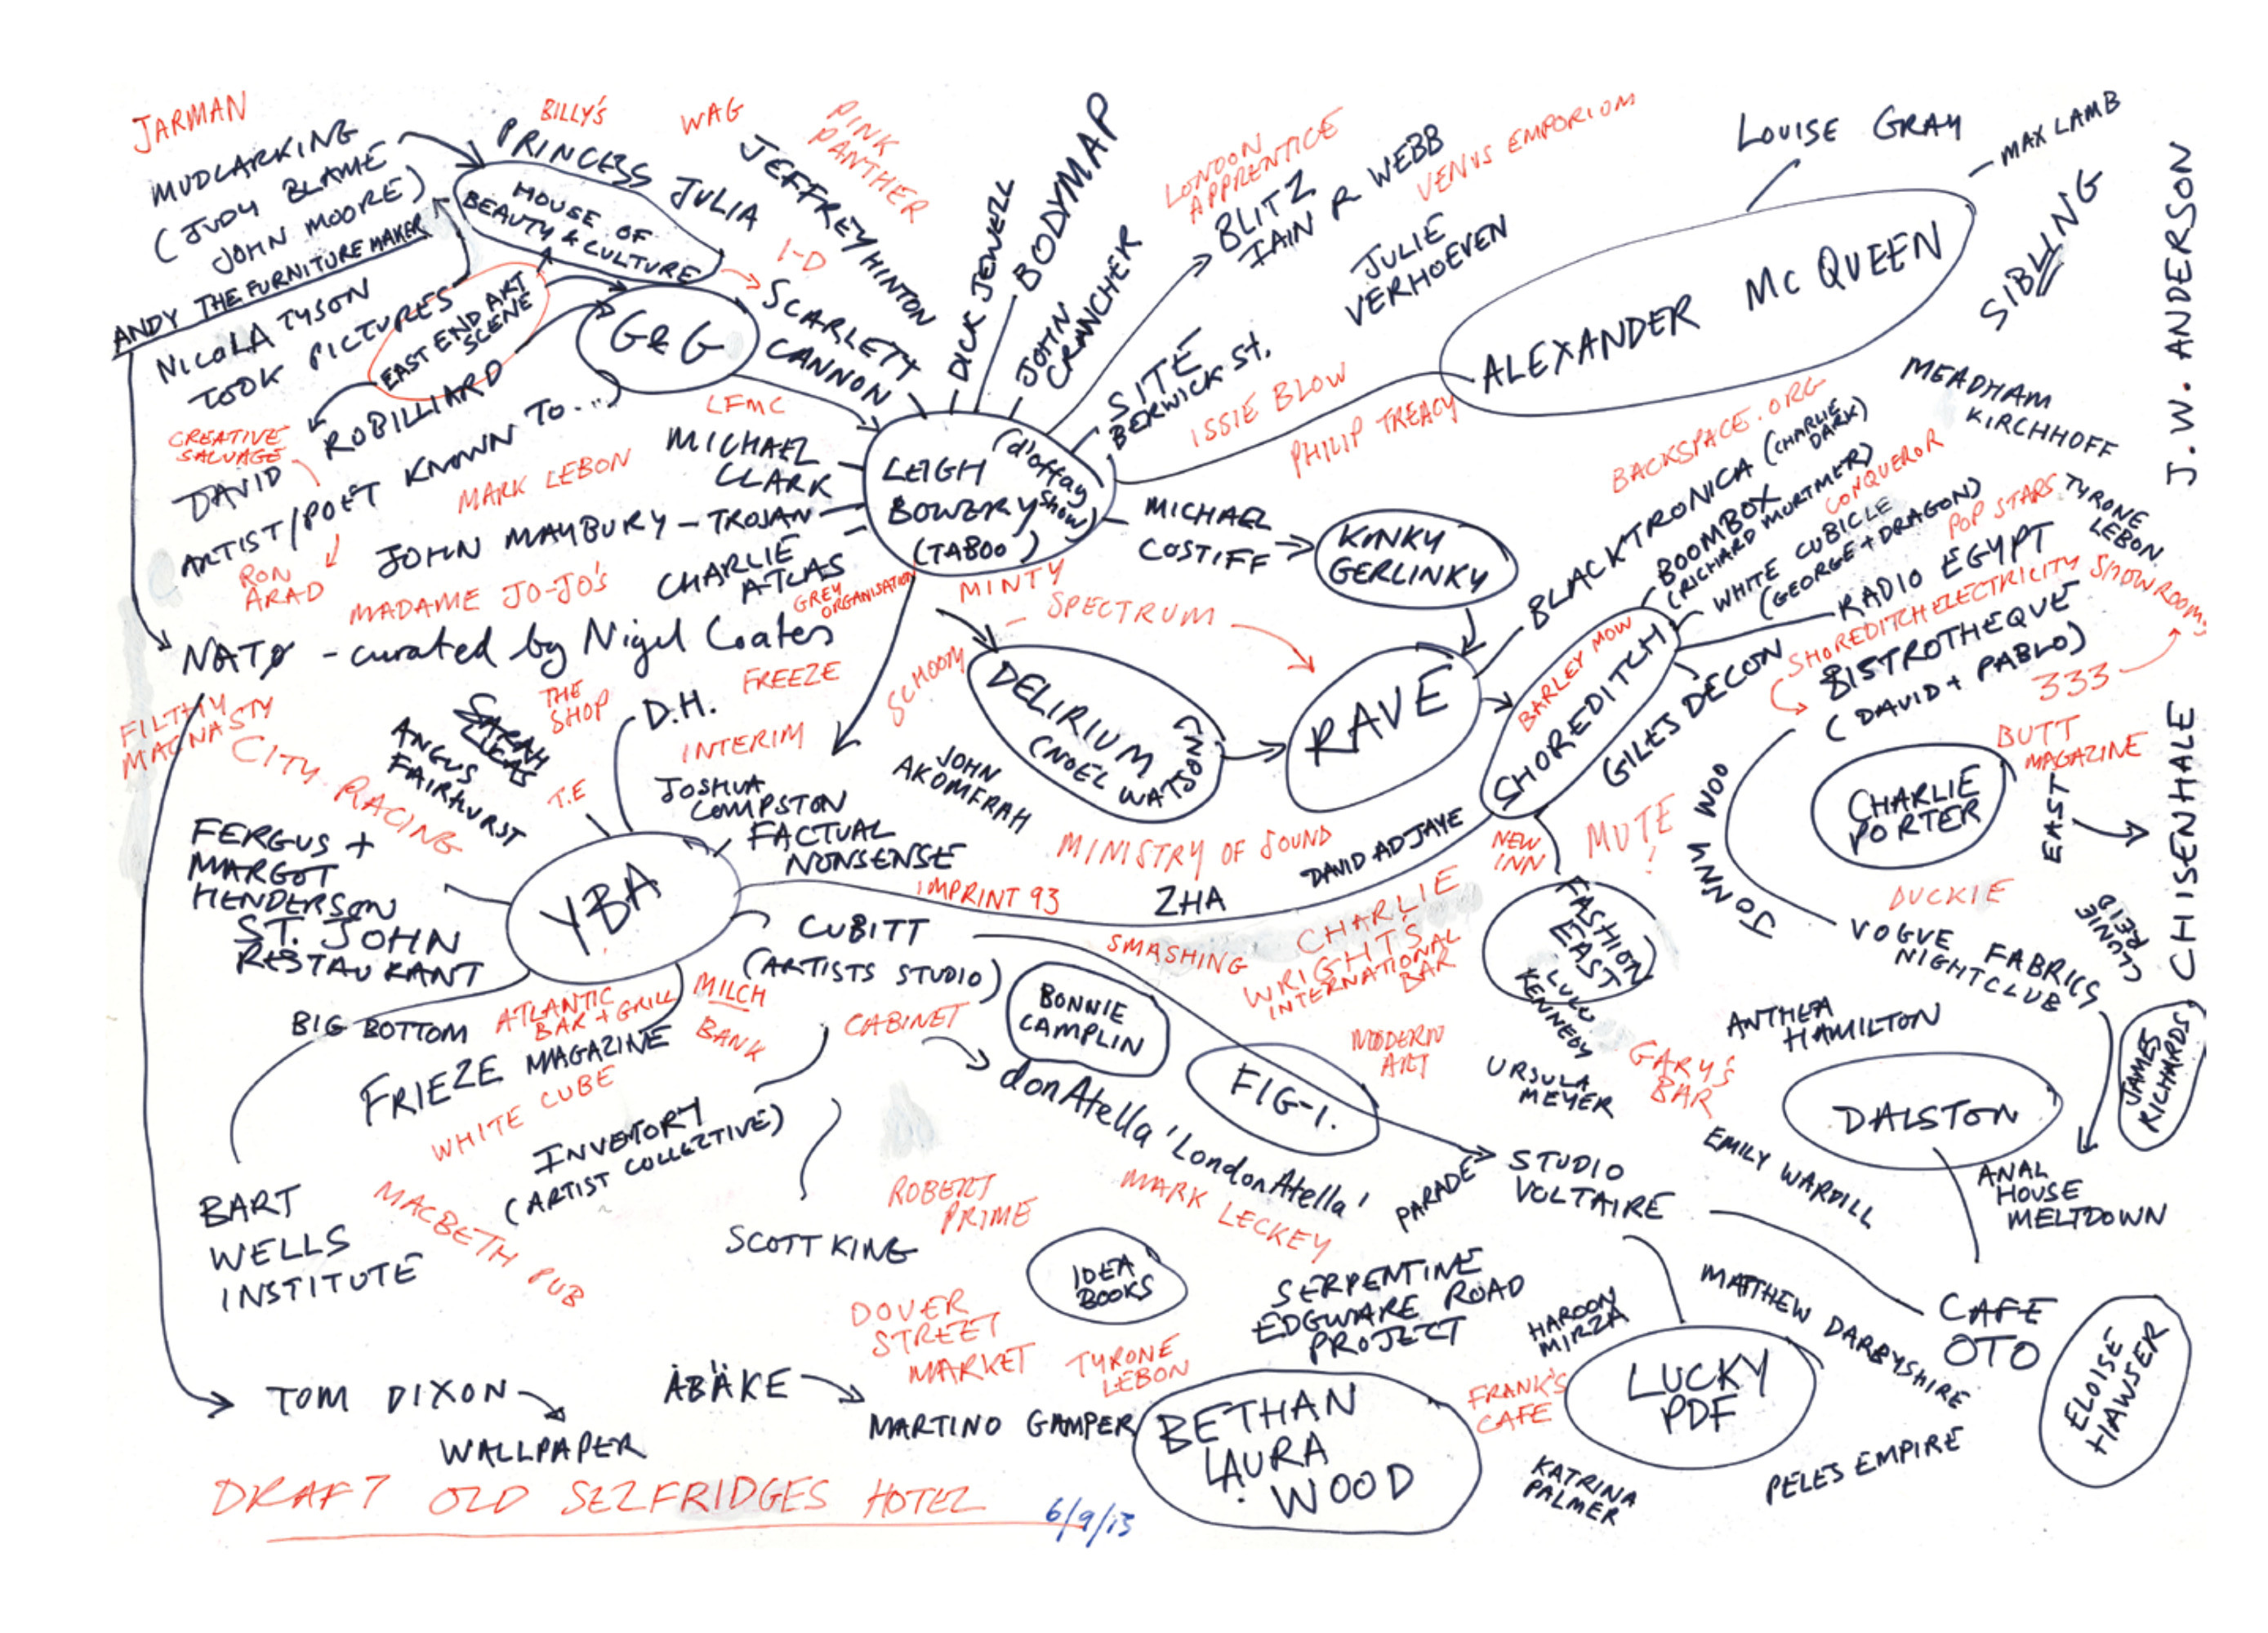 JARMAN
MUDLARKING
(JUDY BLAME
JOHN MOORE)
ANDY THE FURNITURE MAKER
NICOLA TYSON
TOOK PICTURES
EAST END ART
SCENE
BILLY'S
PRINCESS JULIA
HOUSE OF
BEAUTY & CULTURE
G&G
WAG
PINK
PANTHER
JEFFREY HINTON
I-D
SCARLETT
CANNON
DICK JEWELL
BODYMAP
JOHN
CRANCHER
LONDON
APPRENTICE
BLITZ
IAIN R WEBB
VENUS EMPORIUM
JULIE
VERHOEVEN
SITE
BERWICK St.
ISSIE BLOW
PHILIP TREACY
LOUISE GRAY
MAX LAMB
ALEXANDER MCQUEEN
SIBLING
J.W. ANDERSON
MEADHAM
KIRCHHOFF
TYRONE
LEBON
CREATIVE
SALVAGE
DAVID ROBILLIARD
ARTIST/POET KNOWN TO...)
RON
ARAD
LFMC
MICHAEL
CLARK
MARK LEBON
JOHN MAYBURY - TROJAN
CHARLIE
ATLAS
MADAME JO-JO'S
GREY
ORGANISATION
LEIGH
BOWERY
(d'offay
show)
(TABOO)
MINTY
MICHAEL
COSTIFF
KINKY
GERLINKY
SPECTRUM
BACKSPACE.ORG
BLACKTRONICA (CHARLIE
DARK)
BOOMBOX
(RICHARD MORTMER)
CONQUEROR
WHITE CUBICLE
(GEORGE + DRAGON)
POP STARS
RADIO EGYPT
SHOREDITCH ELECTRICITY SHOWROOMS
BISTROTHEQUE
(DAVID + PABLO)
333
NATØ - curated by Nigel Coates
FILTHY
MACNASTY
CITY RACING
SARAH
LUCAS
ANGUS
FAIRHURST
THE
SHOP
T.E
D.H.
FREEZE
INTERIM
JOSHUA
COMPSTON
FACTUAL
NONSENSE
SCHOOM
DELIRIUM
(NOEL WATSON)
JOHN
AKOMFRAH
RAVE
BARLEY MOW
SHOREDITCH
GILES DECON
MINISTRY OF SOUND
DAVID ADJAYE
ZHA
NEW
INN
MUTE
!
JOHNN WOO
CHARLIE
PORTER
BUTT
MAGAZINE
EAST
CHISENHALE
DUCKIE
CLUNIE
REID
VOGUE FABRICS
NIGHTCLUB
FERGUS +
MARGOT
HENDERSON
ST. JOHN
RESTAURANT
YBA
IMPRINT 93
CUBITT
(ARTISTS STUDIO)
SMASHING
CHARLIE
WRIGHT'S
INTERNATIONAL
BAR
FASHION
EAST
LULU
KENNEDY
BIG BOTTOM
ATLANTIC
BAR + GRILL
MILCH
BANK
CABINET
BONNIE
CAMPLIN
FRIEZE MAGAZINE
WHITE CUBE
donAtella 'LondonAtella'
FIG-1.
MODERN
ART
URSULA
MEYER
GARY'S
BAR
ANTHEA
HAMILTON
DALSTON
JAMES
RICHARDS
INVENTORY
(ARTIST COLLECTIVE)
BART
WELLS
INSTITUTE
MACBETH PUB
SCOTT KING
ROBERT
PRIME
MARK LECKEY
PARADE
STUDIO
VOLTAIRE
EMILY WARDILL
ANAL
HOUSE
MELTDOWN
IDEA
BOOKS
SERPENTINE
EDGWARE ROAD
PROJECT
HAROON
MIRZA
MATTHEW DARBYSHIRE
CAFE
OTO
ELOISE
HAWSER
DOVER
STREET
MARKET
TYRONE
LEBON
TOM DIXON
WALLPAPER
ÅBÄKE
MARTINO GAMPER
BETHAN
LAURA
WOOD
FRANK'S
CAFE
LUCKY
PDF
KATRINA
PALMER
PELES EMPIRE
DRAFT OLD SELFRIDGES HOTEL
6/9/13